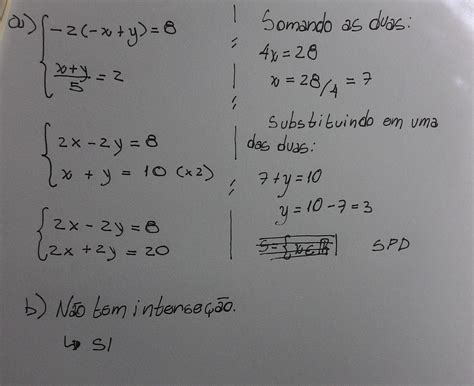 a) { -2(-x+y)=8
x+y/5 = 2
{ 2x-2y=8
x + y = 10 (x2)
{ 2x-2y=8
2x+2y=20
Somando as duas:
4x=28
x = 28/4 = 7
Substituindo em uma
das duas:
7+y=10
y=10-7=3
SPD
b) Não tem interseção.
↳ SI